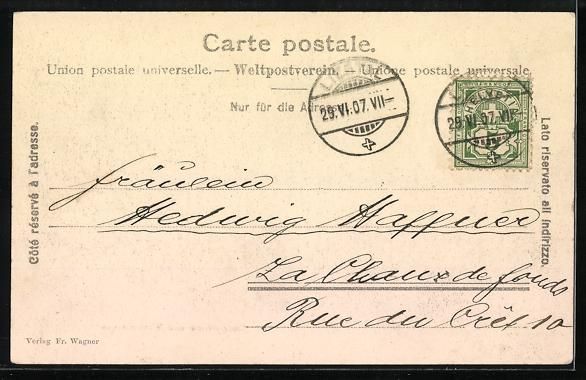 Carte postale.
Union postale universelle. — Weltpostverein. — Unione postale universale.
Nur für die Adresse
29.VI.07.VII—
HELVETIA
29.VI.07.VII—
Côté réservé à l'adresse.
Lato riservato all indirizzo.
Fräulein
Hedwig Haffner
La Chaux de fonds
Rue du Crêt 10
Verlag Fr. Wagner